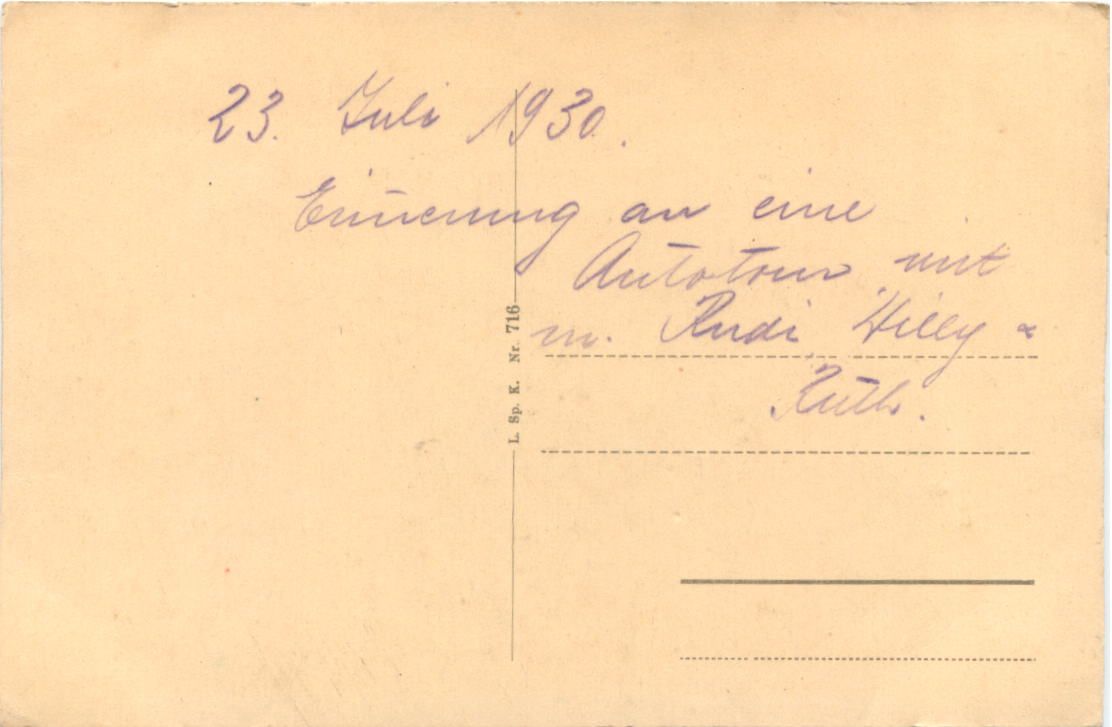 23. Juli 1930.
Erinnerung an eine
Autotour mit
m. Rudi, Willy &
Ruth.
L. Sp. K. Nr. 716